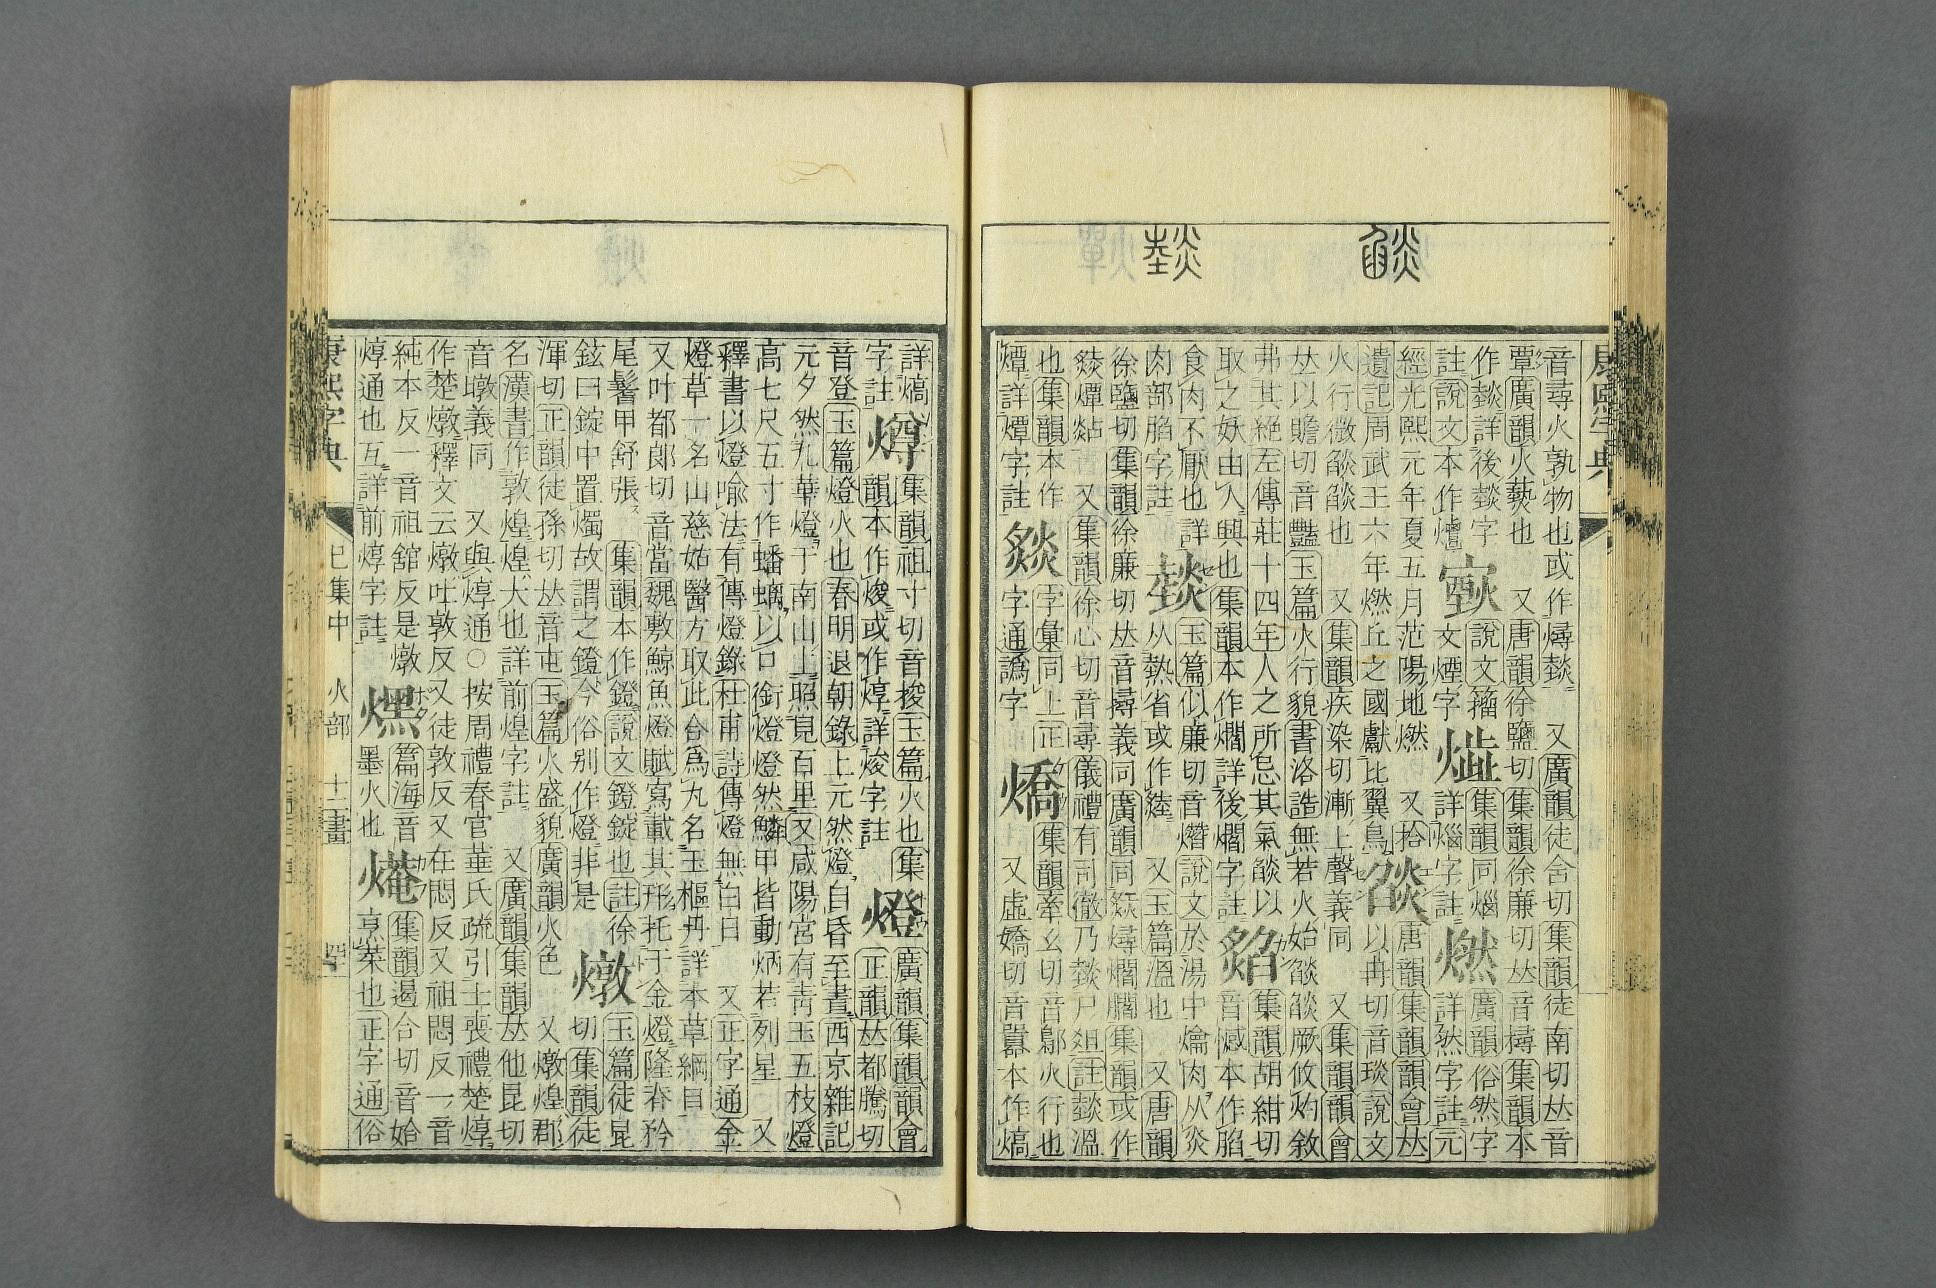 康熙字典
音尋火孰物也或作燖燅 又廣韻徒含切集韻徒南切𠀤音
覃廣韻火爇也 又唐韻徐鹽切集韻徐廉切𠀤音撏集韻本
作燅詳後燅字 說文籀 集韻同㷋 燃 廣韻俗然字
註說文本作 文煙字 詳㷋字註 詳然字註元
經光熙元年夏五月范陽地燃 又拾 唐韻集韻韻會𠀤
遺記周武王六年燃丘之國獻比翼鳥 燄 以冉切音琰說文
火行微燄燄也 又集韻疾染切漸上聲義同 又集韻韻會
𠀤以贍切音豔玉篇火行貌書洛誥無若火始燄燄厥攸灼敘
弗其絕左傳莊十四年人之所忌其氣燄以 集韻胡紺切
取之妖由人興也集韻本作爓詳後爓字註 音憾本作䐄
食肉不厭也詳 燅 玉篇似廉切音㸒說文於湯中爚肉从炎
肉部䐄字註 从熱省或作 又玉篇溫也 又唐韻
徐鹽切集韻徐廉切𠀤音撏義同廣韻同 燖爓 集韻或作
燂 又集韻徐心切音尋儀禮有司徹乃燅尸俎註燅溫
也集韻本作 字彙同上正 燆 集韻牽幺切音鄡火行也
燂詳燂字註 字通譌字 又虛嬌切音囂本作熇
詳熇 集韻祖寸切音捘玉篇火也集 燈 廣韻集韻韻會
字註 燇 韻本作焌或作焞詳焌字註 正韻𠀤都騰切
音登玉篇燈火也春明退朝錄上元然燈自昏至晝西京雜記
元夕然九華燈于南山上照見百里又咸陽宮有靑玉五枝燈
高七尺五寸作蟠螭以口銜燈燈然鱗甲皆動炳若列星 又
釋書以燈喻法有傳燈錄杜甫詩傳燈無白日 又正字通金
燈草一名山慈姑醫方取此合爲九名玉樞丹詳本草綱目
又叶都郞切音當魏敷鯨魚燈賦寫載其形托于金燈隆脊矜
尾鬐甲舒張 集韻本作鐙說文鐙錠也註徐 燉 玉篇徒昆
鉉曰錠中置燭故謂之鐙今俗別作燈非是 切集韻徒
渾切正韻徒孫切𠀤音屯玉篇火盛貌廣韻火色 又燉煌郡
名漢書作敦煌煌大也詳前煌字註 又廣韻集韻𠀤他昆切
音暾義同 又與焞通○按周禮春官菙氏疏引士喪禮楚焞
作楚燉釋文云燉吐敦反又徒敦反又在悶反又祖悶反一音
純本反一音祖舘反是燉 篇海音 集韻遏合切音姶
焞通也互詳前焞字註 㷵 墨火也 烹菜也正字通俗
康熙字典 巳集中 火部 十二畫